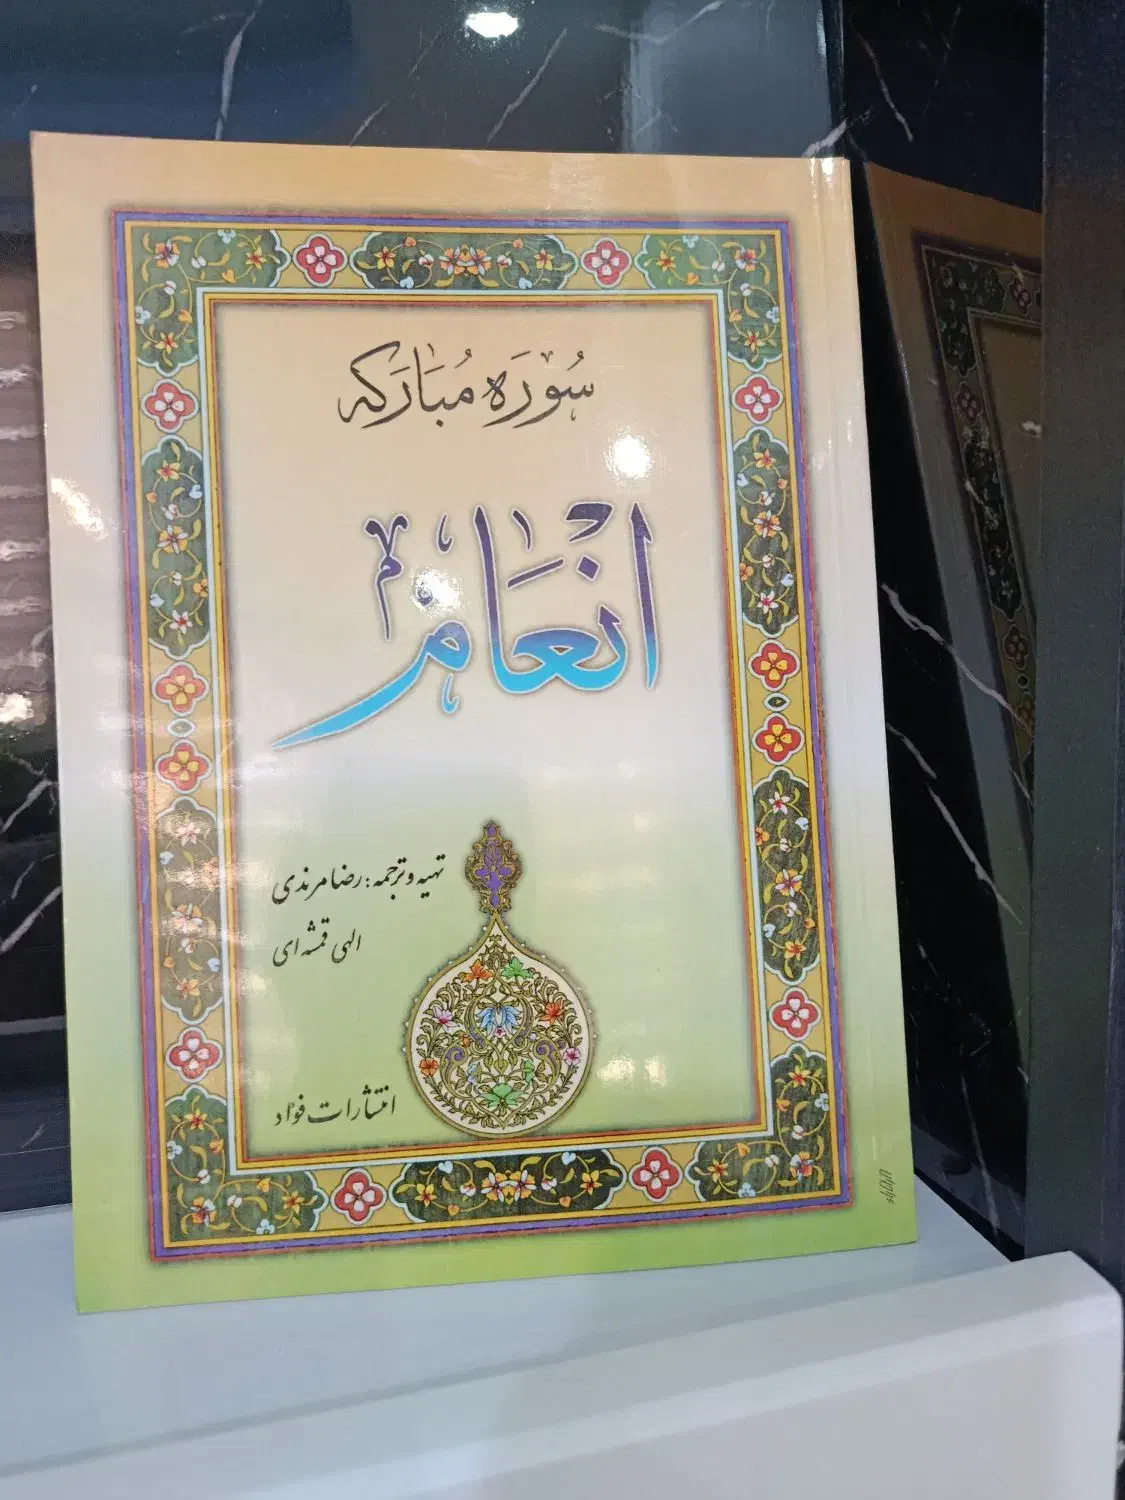 سُورَه مُبارَکه
انْعام
تهیه و ترجمه: رضا مرندی
الهی قمشه ای
انتشارات فؤاد